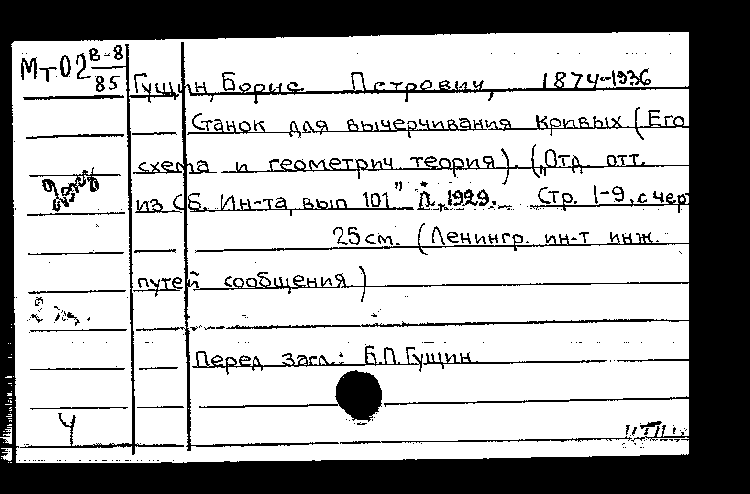 Мт-02 В-8
85
Гущин, Борис Петрович, 1874-1936
Станок для вычерчивания кривых (Его
схема и геометрич. теория). („Отд. отт.
из Сб. Ин-та, вып 101" Л, 1929. Стр. 1-9, с черт
25 см. (Ленингр. ин-т инж.
путей сообщения)
Перед загл.: Б.П. Гущин.
4